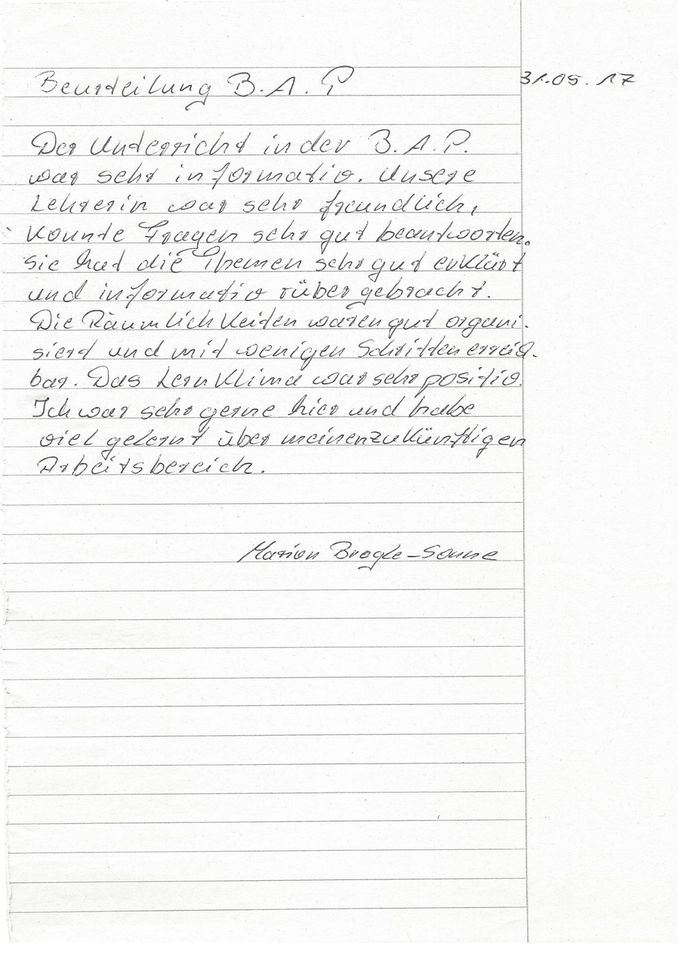 Beurteilung B.A.P 31.05.17
Der Unterricht in der B.A.P.
war sehr informativ. Unsere
Lehrerin war sehr freundlich,
konnte Fragen sehr gut beantworten.
sie hat die Themen sehr gut erklärt
und informativ rüber gebracht.
Die Räumlichkeiten waren gut organi-
siert und mit wenigen Schritten erreich-
bar. Das Lernklima war sehr positiv.
Ich war sehr gerne hier und habe
viel gelernt über meinen zukünftigen
Arbeitsbereich.
Marion Brogle-Sonne